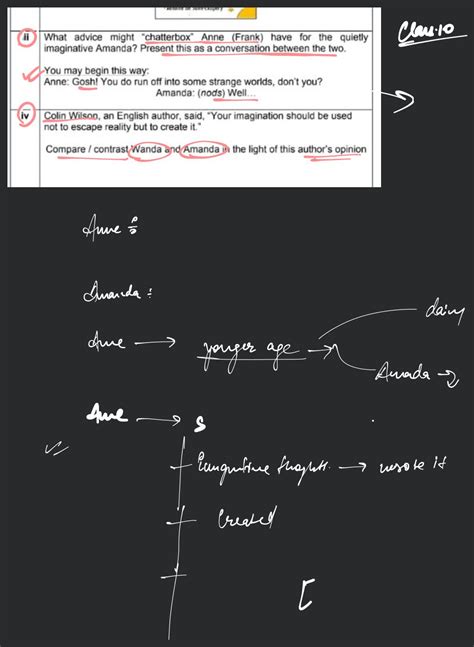 ii What advice might "chatterbox" Anne (Frank) have for the quietly
imaginative Amanda? Present this as a conversation between the two.
You may begin this way:
Anne: Gosh! You do run off into some strange worlds, don't you?
Amanda: (nods) Well...
iv Colin Wilson, an English author, said, "Your imagination should be used
not to escape reality but to create it."
Compare / contrast Wanda and Amanda in the light of this author's opinion
Class-10
Anne :
Amanda :
Anne → younger age →
Amanda →
Anne → S
→ wrote it
Created
[